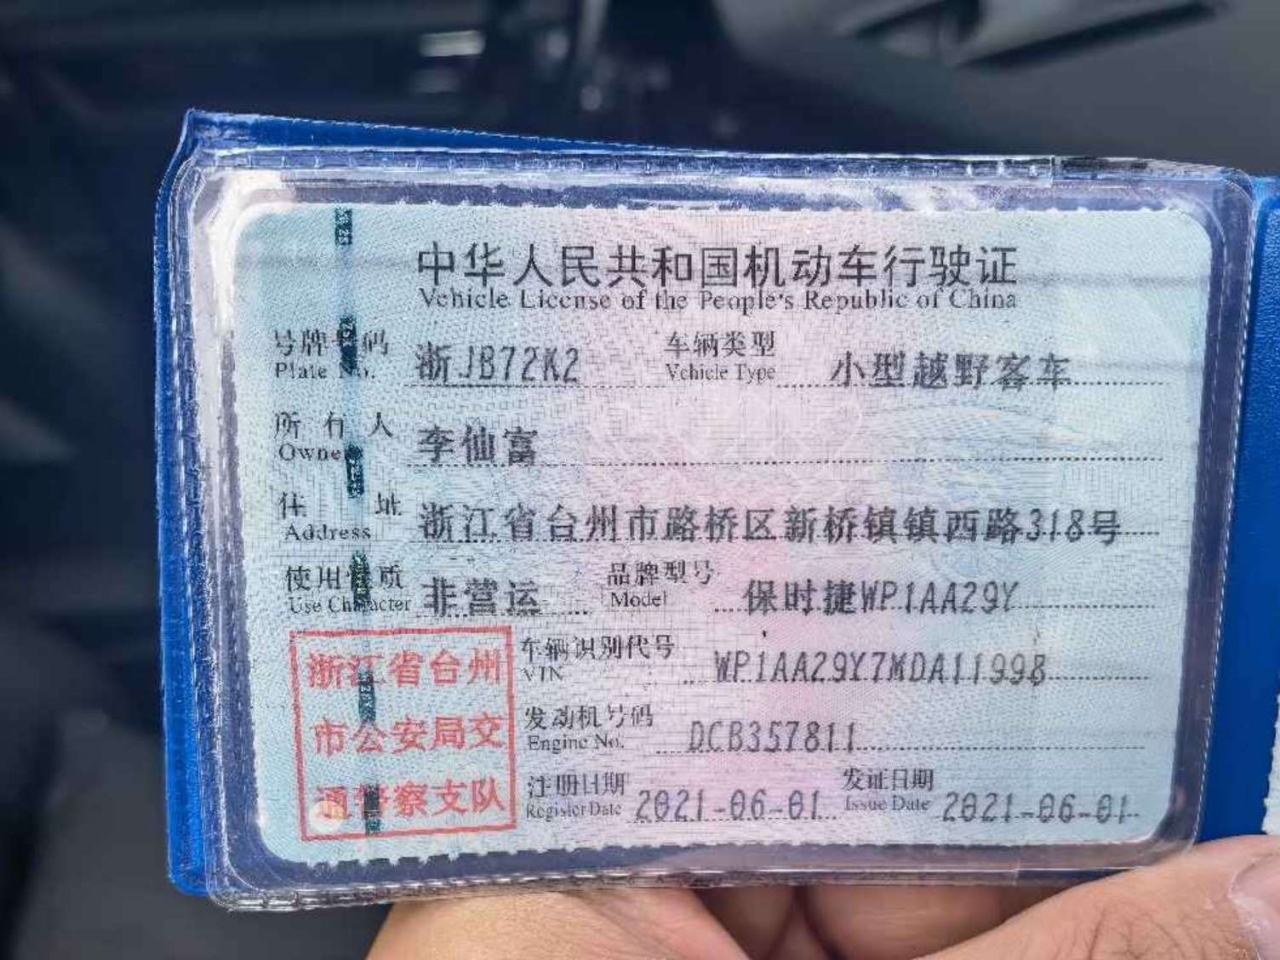 中华人民共和国机动车行驶证
Vehicle License of the People's Republic of China
号牌号码 浙JB72K2 车辆类型 小型越野客车
Plate No. Vehicle Type
所有人 李仙富
Owner
住址 浙江省台州市路桥区新桥镇镇西路318号
Address
使用性质 非营运 品牌型号 保时捷WP1AA29Y
Use Character Model
浙江省台州
市公安局交
通警察支队
车辆识别代号 WP1AA29Y7MDA11998
VIN
发动机号码 DCB357811
Engine No.
注册日期 2021-06-01 发证日期 2021-06-01
Register Date Issue Date